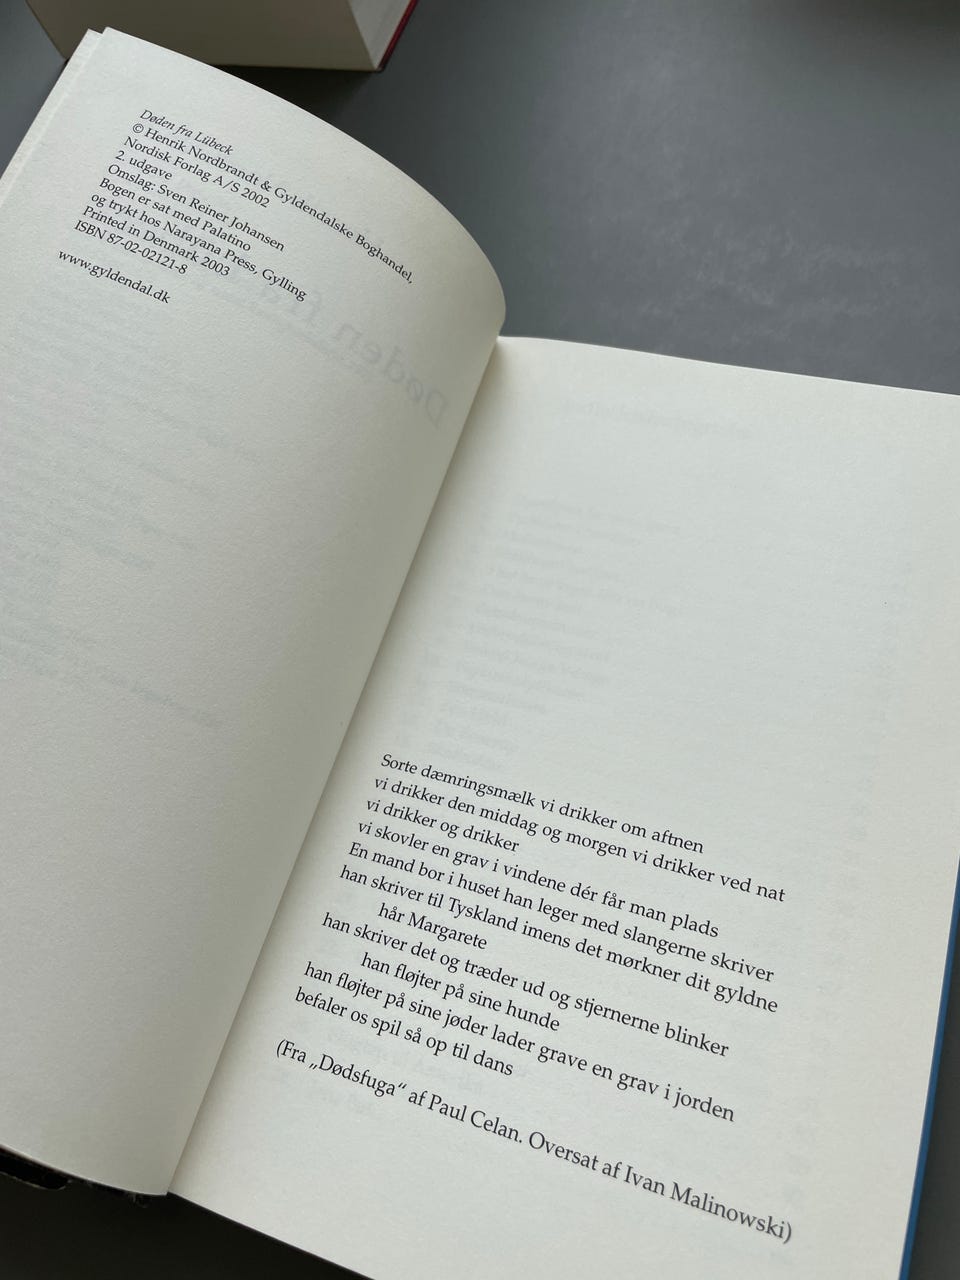 Døden fra Lübeck
© Henrik Nordbrandt & Gyldendalske Boghandel,
Nordisk Forlag A/S 2002
2. udgave
Omslag: Sven Reiner Johansen
Bogen er sat med Palatino
og trykt hos Narayana Press, Gylling
Printed in Denmark 2003
ISBN 87-02-02121-8
www.gyldendal.dk
Sorte dæmringsmælk vi drikker om aftnen
vi drikker den middag og morgen vi drikker ved nat
vi drikker og drikker
vi skovler en grav i vindene dér får man plads
En mand bor i huset han leger med slangerne skriver
han skriver til Tyskland imens det mørkner dit gyldne
hår Margarete
han skriver det og træder ud og stjernerne blinker
han fløjter på sine hunde
han fløjter på sine jøder lader grave en grav i jorden
befaler os spil så op til dans
(Fra „Dødsfuga“ af Paul Celan. Oversat af Ivan Malinowski)